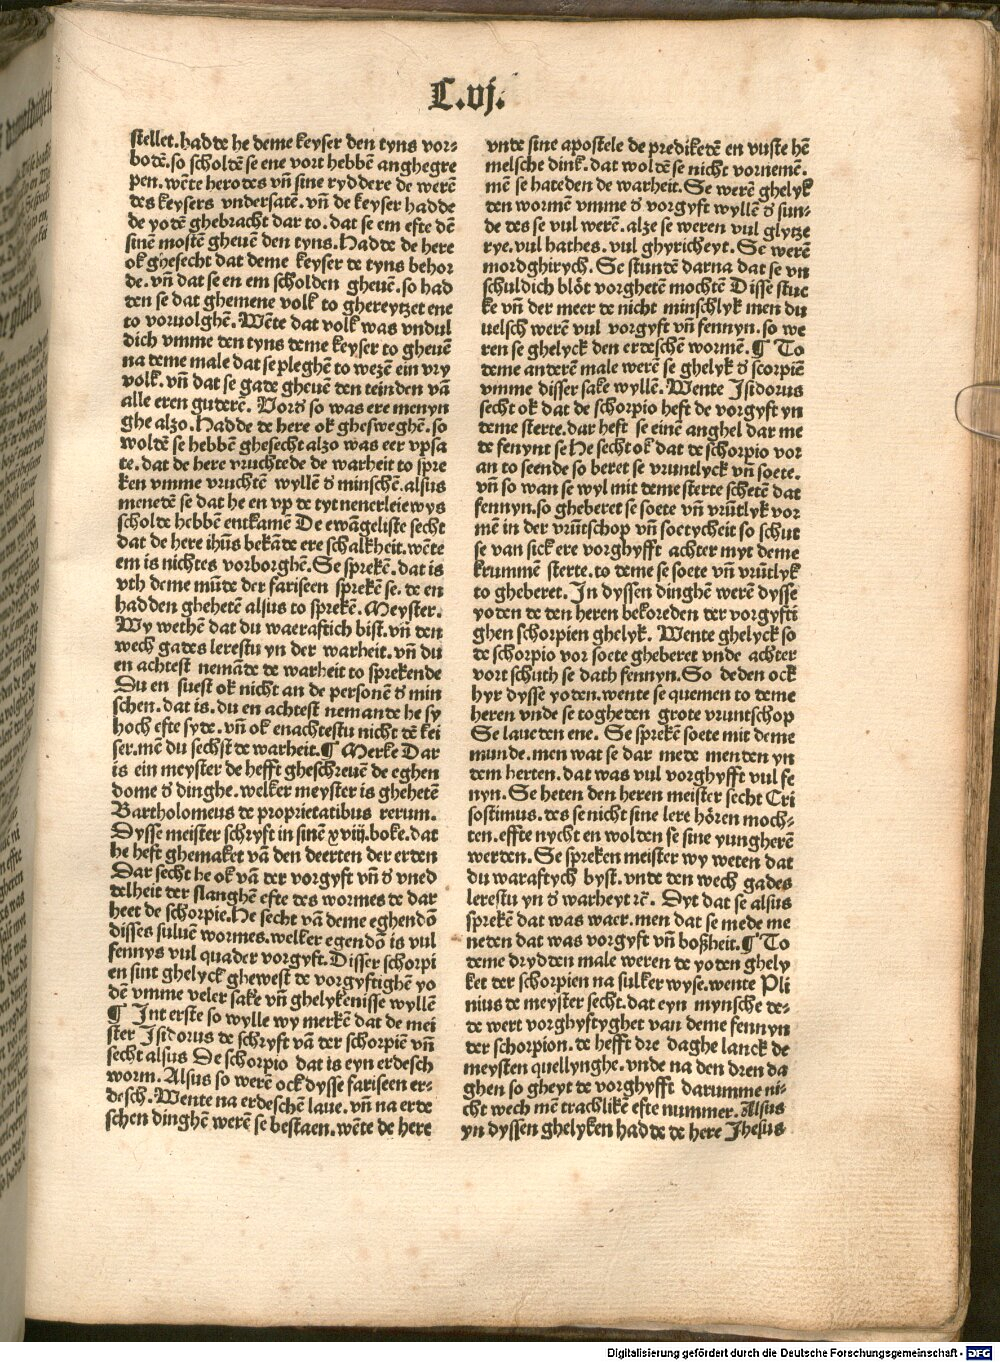 L.vj.
stellet. hadde he deme keyser den tyns vor⸗
botē. so scholdē se ene vort hebbē anghegre
pen. wēte herodes vn̄ sine ryddere de werē
des keysers vndersatē. vn̄ de keyser hadde
de yodē ghebracht dar to. dat se em efte dē
sinē mostē gheuē den tyns. Hadde de here
ok ghesecht dat deme keyser de tyns behor
de. vn̄ dat se en em scholden gheuē. so had
den se dat ghemene volk to ghereytzet ene
to voruolghē. Wēte dat volk was vndul
dich vmme den tyns deme keyser to gheuē
na deme male dat se pleghē to wezē ein vry
volk. vn̄ dat se gade gheuē den teinden vā
alle eren guderē. Vord̓ so was ere menyn
ghe alzo. Hadde de here ok ghesweghē. so
woldē se hebbē ghesecht alzo was eer vpsa
te. dat de here vruchtede de warheit to spre
ken vmme vruchtē wyllē d̓ minschē. alsus
menedē se dat he en vp de tyt nenerleie wys
scholde hebbē entkamē De ewāgeliste secht
dat de here ihūs bekāde ere schalkheit. wēte
em is nichtes vorborghē. Se sprekē. dat is
vth deme mūde der fariseen sprekē se. de en
hadden ghehetē alsus to sprekē. Meyster.
Wy wethē dat du waeraftich bist. vn̄ den
wech gades lerestu yn der warheit. vn̄ du
en achtest nemāde de warheit to sprekende
Du en suest ok nicht an de personē d̓ min
schen. dat is. du en achtest nemande he sy
hoch efte syde. vn̄ ok enachtestu nicht dē kei
ser. mē du sechst de warheit. ¶ Merke Dar
is ein meyster de hefft gheschreuē de eghen
dome d̓ dinghe. welker meyster is ghehetē
Bartholomeus de proprietatibus rerum.
Dysse meister schryft in sinē xviij. boke. dat
he heft ghemaket vā den deerten der erden
Dar secht he ok vā der vorgyft vn̄ d̓ vned
delheit der slanghē efte des wormes de dar
heet de schorpie. He secht vā deme eghendō
disses suluē wormes. welker egendō is vul
fennys vul quader vorgyft. Disser schorpi
en sint ghelyck ghewest de vorgyftighē yo
dē vmme veler sake vn̄ ghelykenisse wyllē
¶ Int erste so wylle wy merkē dat de mei
ster Isidorus de schryft vā der schorpiē vn̄
secht alsus De schorpio dat is eyn erdesch
worm. Alsus so werē ock dysse fariseen er⸗
desch. Wente na erdeschē laue. vn̄ na erde
schen dinghē werē se bestaen. wēte de here
vnde sine apostele de prediketē en vuste hē
melsche dink. dat woldē se nicht vornemē.
mē se hateden de warheit. Se werē ghelyk
den wormē vmme d̓ vorgyft wyllē d̓ sun⸗
de des se vul werē. alze se weren vul glytze
rye. vul hathes. vul ghyricheyt. Se werē
mordghirych. Se stundē darna dat se vn
schuldich blōt vorghetē mochtē Disse stuc
ke vn̄ der meer de nicht minschlyk men du
uelsch werē vul vorgyft vn̄ fennyn. so we
ren se ghelyck den erdeschē wormē. ¶ To
deme anderē male werē se ghelyk d̓ scorpiē
vmme disser sake wyllē. Wente Isidorus
secht ok dat de schorpio heft de vorgyft yn
deme sterte. dar heft se einē anghel dar me
de fenynt se He secht ok dat de schorpio vor
an to seende so beret se vruntlyck vn̄ soete.
vn̄ so wan se wyl mit deme sterte schetē dat
fennyn. so gheberet se soete vn̄ vrūtlyk vor
mē in der vrūtschop vn̄ soetycheit so schut
se van sick ere vorghyfft achter myt deme
krummē sterte. to deme se soete vn̄ vrūtlyk
to gheberet. In dyssen dinghē werē dysse
yoden de den heren bekoreden der vorgyfti
ghen schorpien ghelyk. Wente ghelyck so
de schorpio vor soete gheberet vnde achter
vort schuth se dath fennyn. So deden ock
hyr dysse yoden. wente se quemen to deme
heren vnde se togheden grote vruntschop
Se laueden ene. Se sprekē soete mit deme
munde. men wat se dar mede menden yn
dem herten. dat was vul vorghyfft vul fe
nyn. Se heten den heren meister secht Cri
sostimus. des se nicht sine lere hōren moch⸗
ten. effte nycht en wolden se sine yungherē
werden. Se spreken meister wy weten dat
du waraftych byst. vnde den wech gades
lerestu yn d̓ warheyt rē. Dyt dat se alsus
sprekē dat was waer. men dat se mede me
neden dat was vorgyft vn̄ boßheit. ¶ To
deme drydden male weren de yoden ghely
ket der schorpien na sulker wyse. wente Pli
nius de meyster secht. dat eyn mynsche de⸗
de wert vorghyftyghet van deme fennyn
der schorpion. de hefft dre daghe lanck de
meysten quellynghe. vnde na den dren da
ghen so gheyt de vorghyfft darumme ni⸗
cht wech mē trachlikē efte nummer. Alsus
yn dyssen ghelyken hadde de here Jhesus
Digitalisierung gefördert durch die Deutsche Forschungsgemeinschaft - DFG